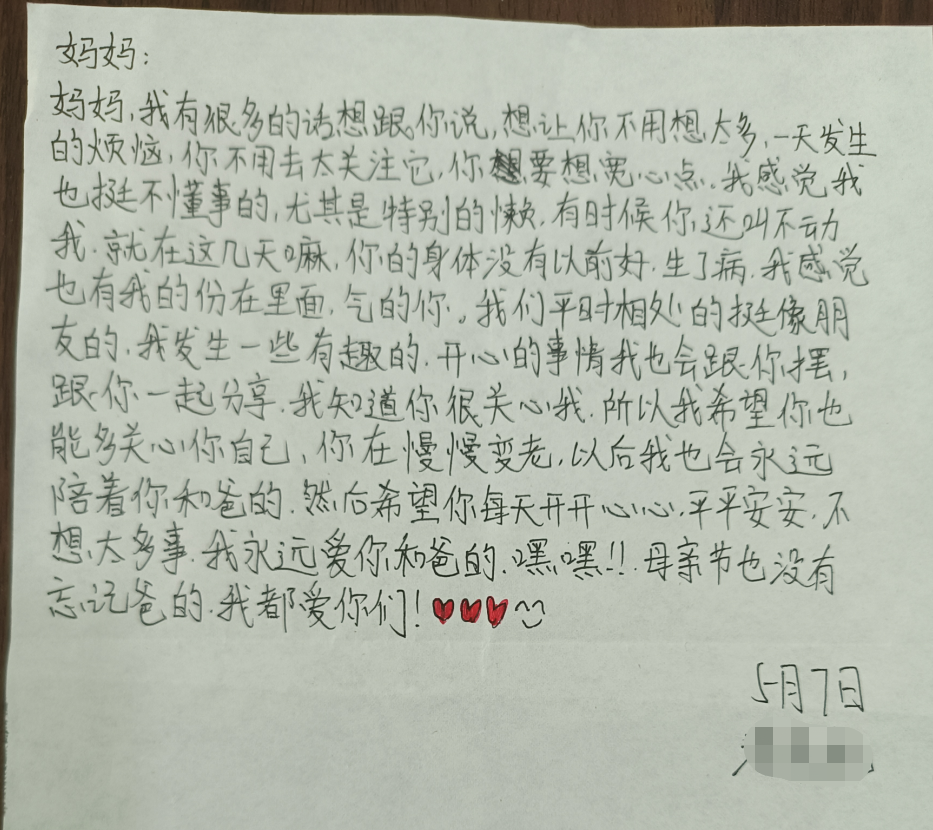 妈妈:
妈妈,我有很多的话想跟你说,想让你不用想太多,一天发生
的烦恼,你不用去太关注它,你想要想宽心点.我感觉我
也挺不懂事的,尤其是特别的懒.有时候你还叫不动
我.就在这几天嘛,你的身体没有以前好.生了病.我感觉
也有我的份在里面,气的你。我们平时相处的挺像朋
友的,我发生一些有趣的.开心的事情我也会跟你摆,
跟你一起分享.我知道你很关心我.所以我希望你也
能多关心你自己,你在慢慢变老,以后我也会永远
陪着你和爸的.然后希望你每天开开心心.平平安安.不
想太多事.我永远爱你和爸的.嘿嘿!!母亲节也没有
忘记爸的.我都爱你们!
5月7日